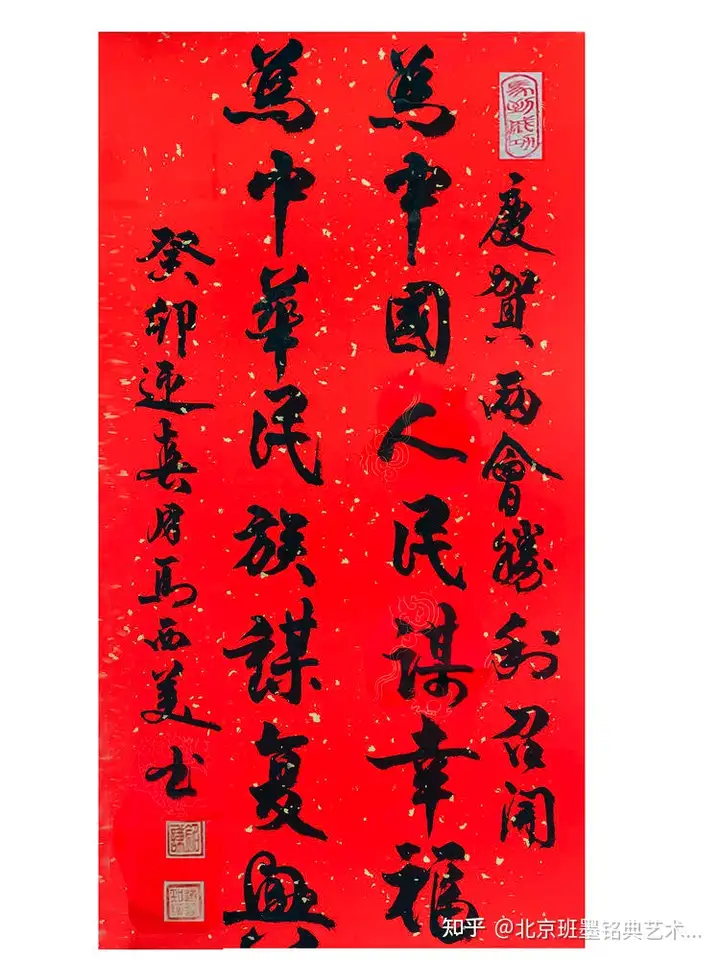 慶賀两會勝利召開
為中國人民謀幸福
為中華民族謀复興
癸卯迎春月馬西美书
知乎 @北京班墨铭典艺术...